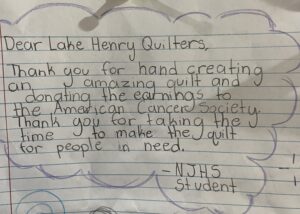 Dear Lake Henry Quilters,
Thank you for hand creating
an amazing quilt and
donating the earnings to
the American Cancer Society.
Thank you for taking the
time to make the quilt
for people in need.
- NJHS
Student